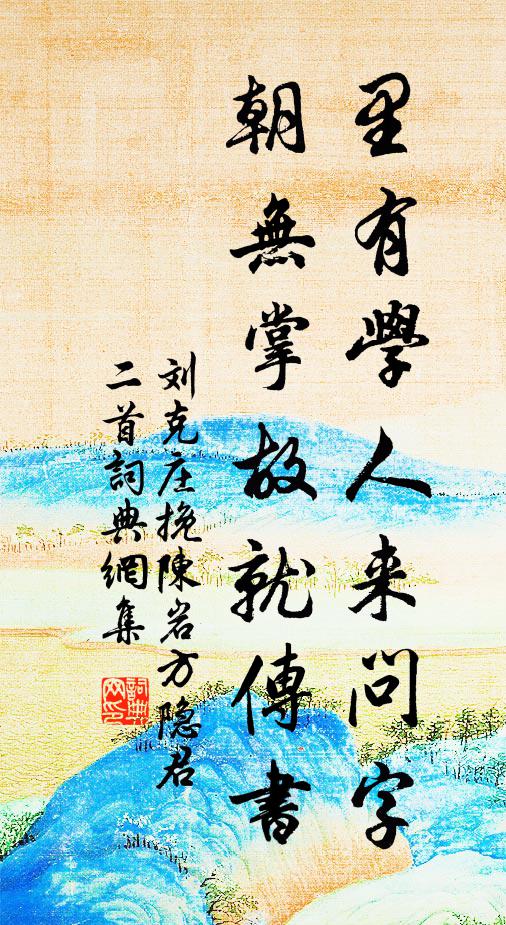 里有學人来問字
朝無掌故就傳書
刘克庄挽陳岩方隐君
二首詞典網集
詞典网印